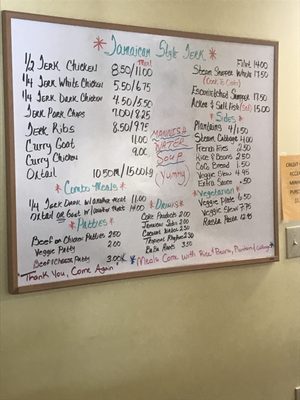 * Jamaican Style Jerk *
Meal
1/2 Jerk Chicken 8.50/11.00
1/4 Jerk White Chicken 5.50/6.75
1/4 Jerk Dark Chicken 4.50/5.50
Jerk Pork Chops 7.00/8.25
Jerk Ribs 8.50/9.75
Curry Goat 11.00
Curry Chicken 9.00
Oxtail 10.50m/15.00lrg
MANNISH
WATER
SOUP
(Yummy)
* Combo Meals *
1/4 Jerk Dark w/another meat 11.00
Oxtail or Goat w/another meat 14.00
* Patties *
Beef or Chicken Patties 2.50
Veggie Patty 2.00
Beef/Cheese Patty 3.00
Thank You, Come Again
* Drinks *
Coke Products 2.00
Jamaican Soda 2.00
2.50
BaBa Roots 3.50
Fillet 14.00
Steam Snapper Whole 17.50
(Cook To Order)
Escovitched Snapper 17.50
Ackee & Salt Fish (Sat) 15.00
* Sides *
Plantains 4/1.50
Steam Cabbage 4.00
French Fries 2.50
Rice & Beans 2.50
Coco Bread 1.50
Veggie Stew 4.95
Extra Sauce .50
* Vegetarian *
Veggie Plate 6.50
Veggie Stew 7.75
Rasta Pasta 12.95
* Meals Come with Rice & Beans, Plantain & Cabbage *
CREDIT